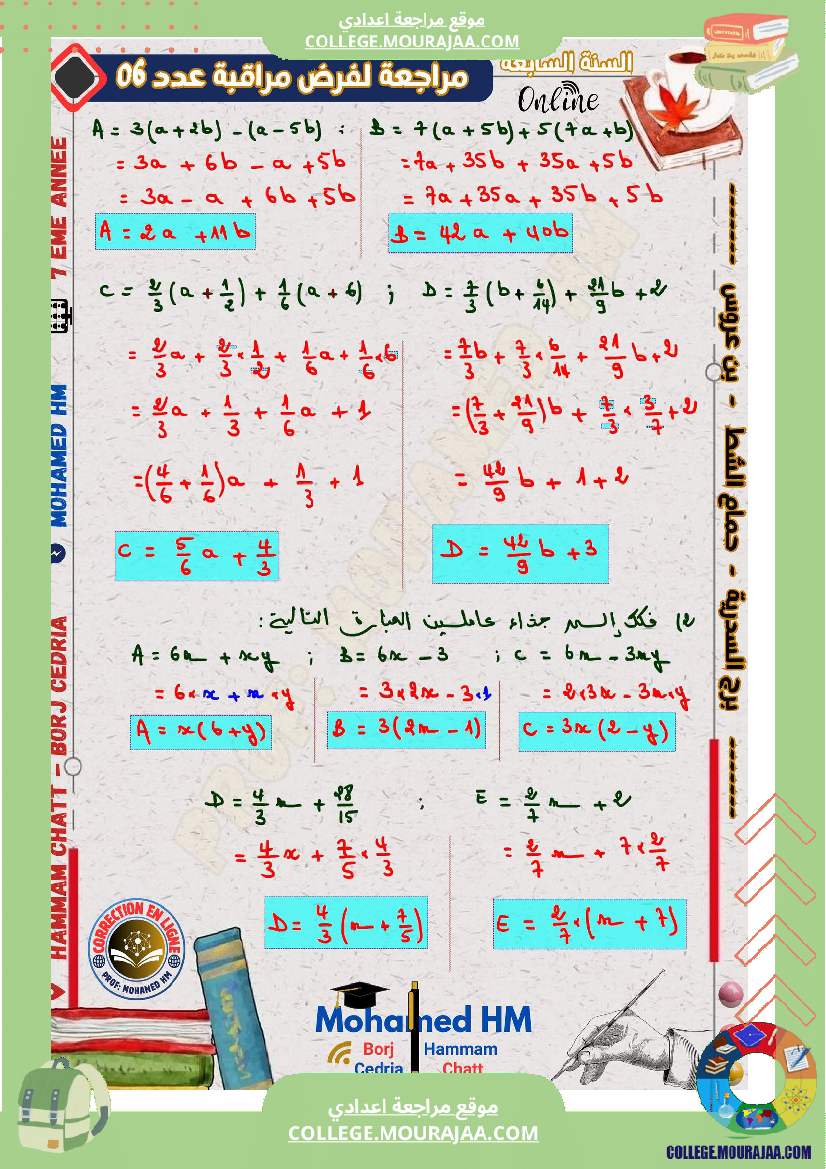 موقع مراجعة اعدادي
COLLEGE.MOURAJAA.COM
السنة السابعة
مراجعة لفرض مراقبة عدد 06
Online
A = 3(a+2b) - (a-5b) ; B = 7(a+5b) + 5(7a+b)
= 3a + 6b - a + 5b
= 7a + 35b + 35a + 5b
= 3a - a + 6b + 5b
= 7a + 35a + 35b + 5b
A = 2a + 11b
B = 42a + 40b
C = 2/3 (a + 1/2) + 1/6 (a + 6) ; D = 7/3 (b + 6/14) + 21/9 b + 2
= 2/3 a + 2/3 × 1/2 + 1/6 a + 1/6 × 6
= 7/3 b + 7/3 × 6/14 + 21/9 b + 2
= 2/3 a + 1/3 + 1/6 a + 1
= (7/3 + 21/9) b + 7/3 × 3/7 + 2
= (4/6 + 1/6) a + 1/3 + 1
= 42/9 b + 1 + 2
C = 5/6 a + 4/3
D = 42/9 b + 3
2) فكك إلى جذاء عاملين العبارة التالية :
A = 6x + xy ; B = 6x - 3 ; C = 6x - 3xy
= 6 × x + x × y
= 3 × 2x - 3 × 1
= 2 × 3x - 3x × y
A = x(6+y)
B = 3(2x - 1)
C = 3x(2 - y)
D = 4/3 x + 28/15 ; E = 2/7 x + 2
= 4/3 x + 7/5 × 4/3
= 2/7 x + 7 × 2/7
D = 4/3 (x + 7/5)
E = 2/7 × (x + 7)
7 EME ANNEE
MOHAMED HM
HAMMAM CHATT - BORJ CEDRIA
------- برج السدرية - حمام الشط - بن عروس -------
PROF: MOHAMED HM
CORRECTION EN LIGNE
PROF: MOHAMED HM
Mohamed HM
Borj Cedria
Hammam Chatt
موقع مراجعة اعدادي
COLLEGE.MOURAJAA.COM
COLLEGE.MOURAJAA.COM